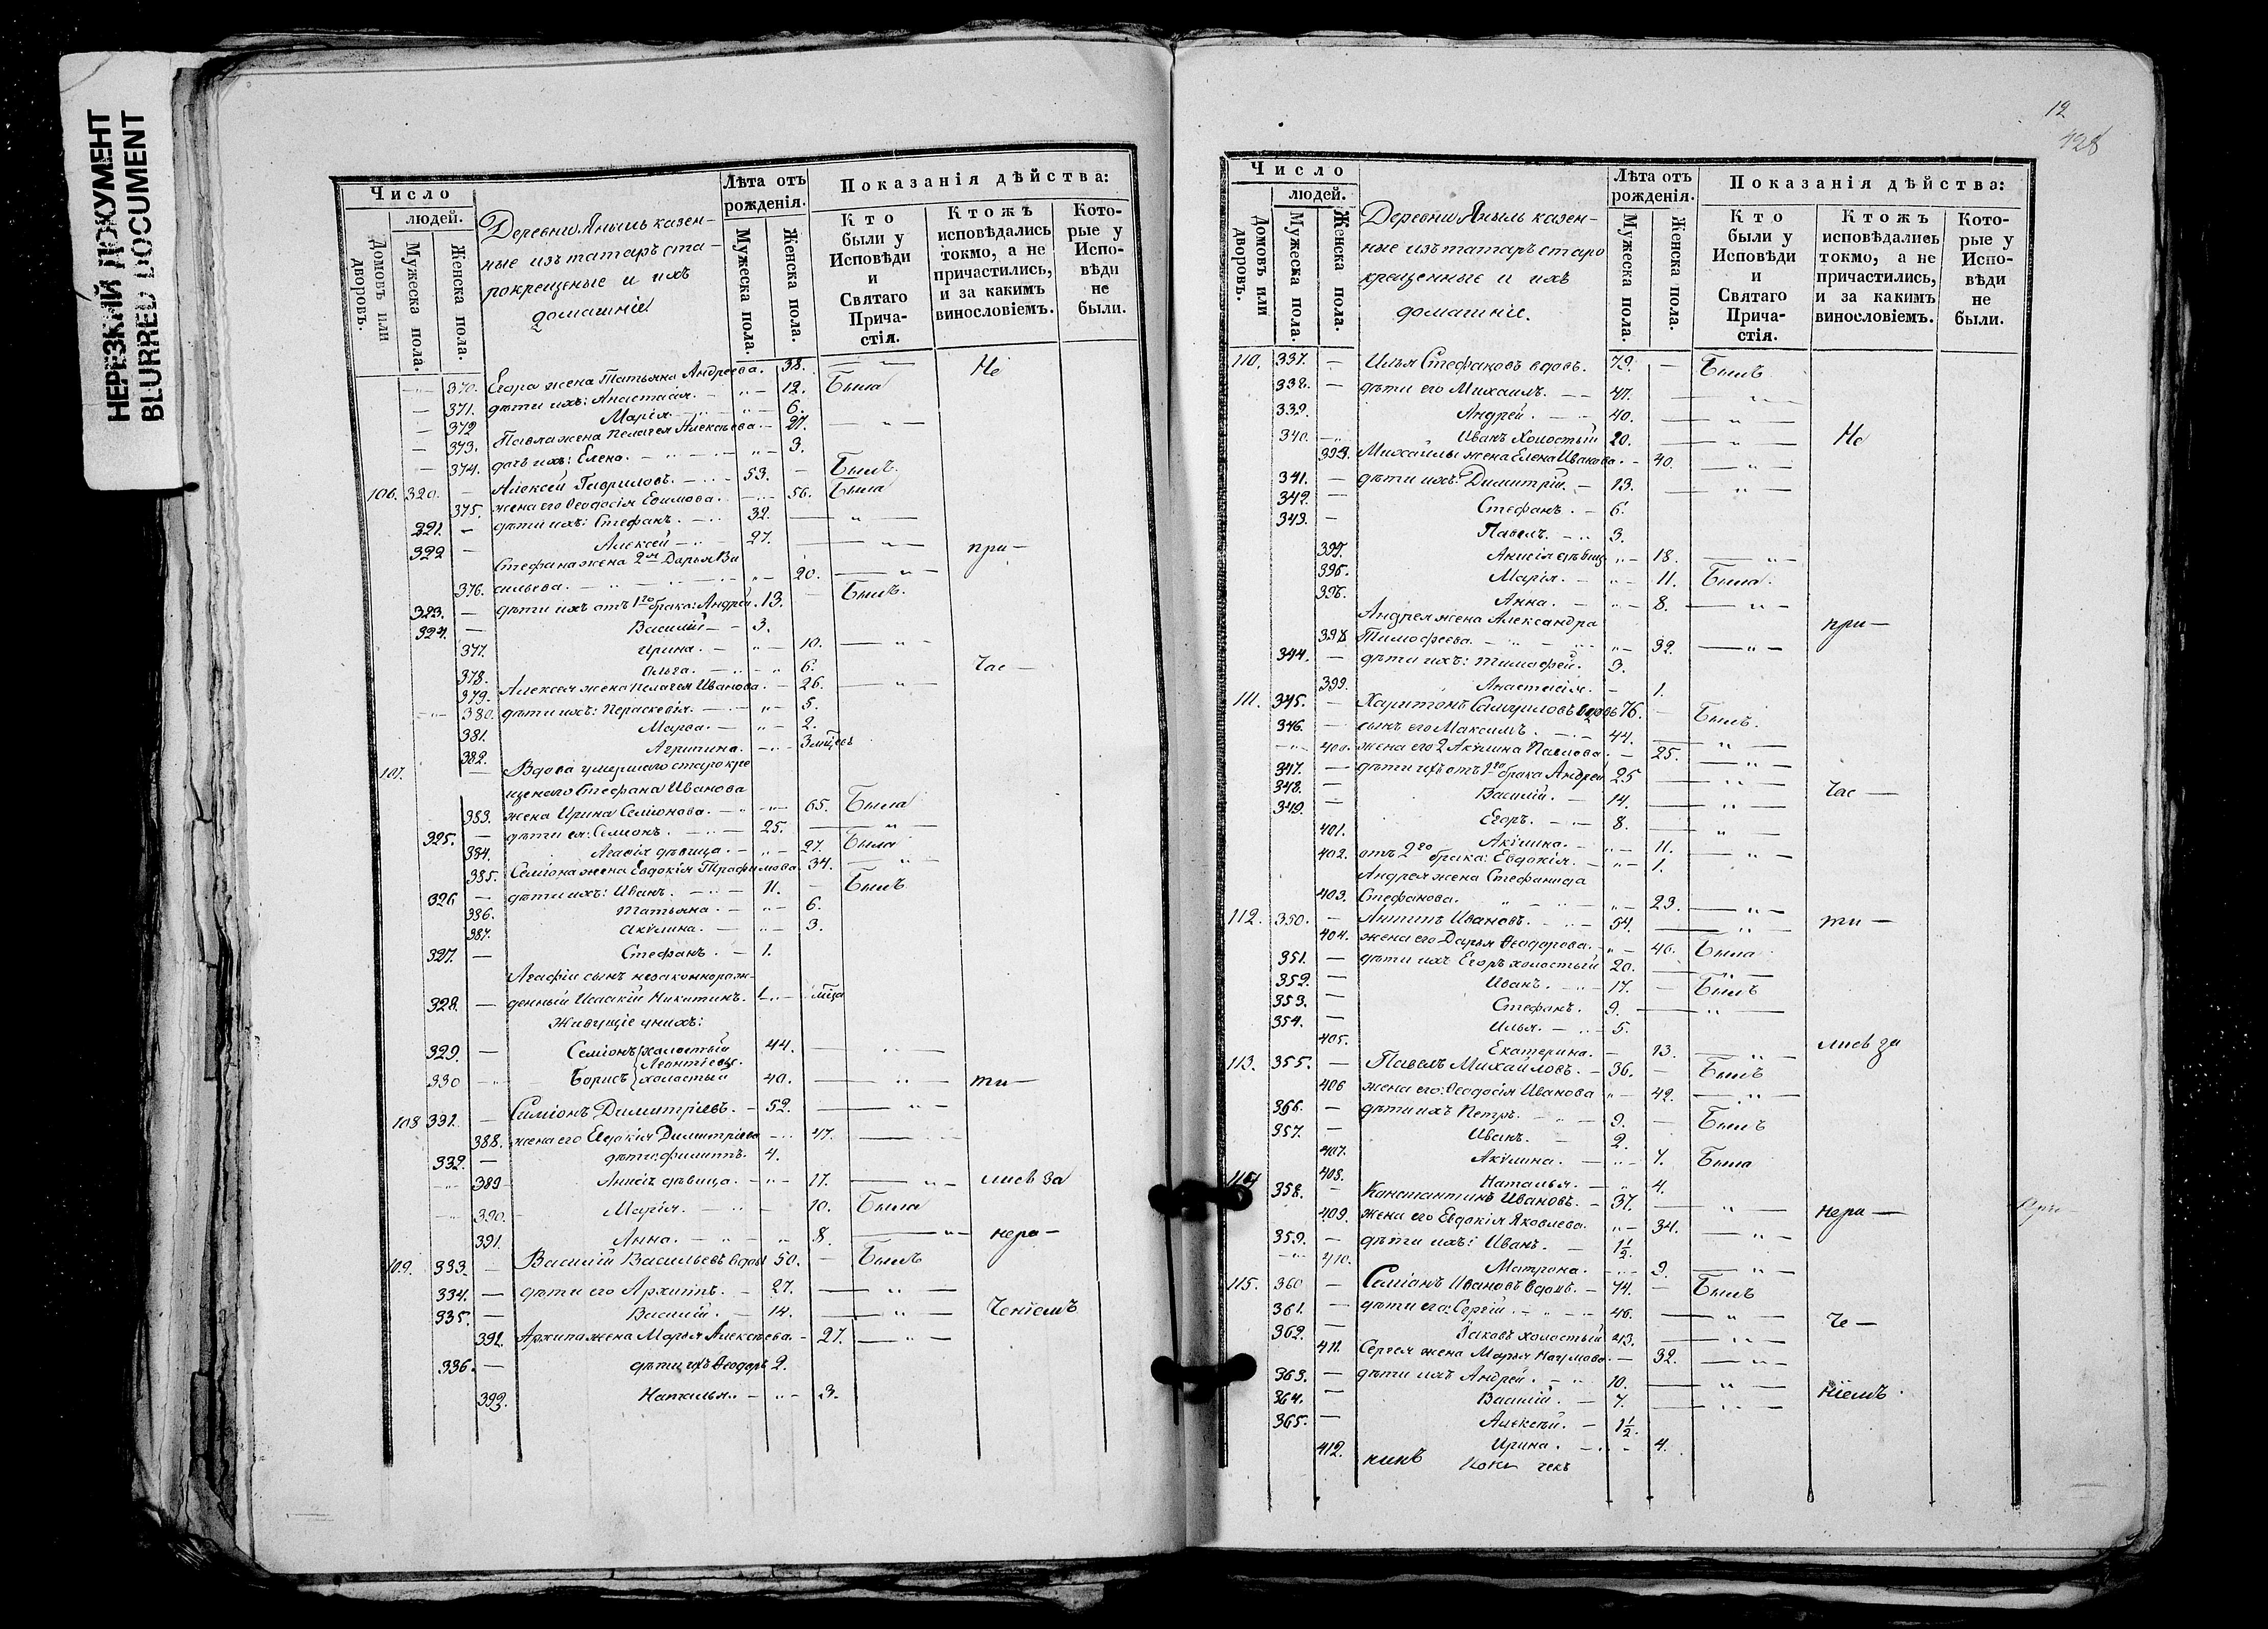 НЕРЕЗКИЙ ДОКУМЕНТ
BLURRED DOCUMENT
Число
людей.
Домовъ или дворовъ.
Мужеска пола.
Женска пола.
Деревни Янылъ казен-
ные изъ татаръ ста-
рокрещеные и ихъ
домашніе
Лѣта отъ рожденія.
Мужеска пола.
Женска пола.
Показанія дѣйства:
Кто были у Исповѣди и Святаго Прича- стія.
Ктожъ исповѣдались токмо, а не причастились, и за какимъ винословіемъ.
Кото- рые у Испо- вѣди не были.
370. Егора жена Татьяна Андреева. 38. Не
371. дѣти ихъ: Анастасія. 12. Была
372 Марія. 6.
373. Павла жена Пелагея Алексѣева 27.
374. дочь ихъ: Елена. 3.
106. 320. Алексей Гавриловъ. 53. Былъ.
375. жена его Ѳеодосія Ефимова. 56. Была
321. дѣти ихъ: Стефанъ. 32.
322 Алексей 27. при-
Стефана жена 2я Дарья Ва
376. сильева. 20.
323. дѣти ихъ отъ 1го брака: Андрей. 13. Былъ.
324. Василій 3.
377. Ирина. 10.
378. Ольга. 6. час-
379. Алексея жена Пелагея Иванова. 26.
380. дѣти ихъ: Параскевія. 5.
381. Марѳа. 2.
382. Агрипина. 3 мѣсяц
107. Вдова умершаго старокре
щенаго Стефана Иванова
383. жена Ирина Семіонова. 65. Была
325. дѣти ея: Семіонъ. 25.
384. Агафія дѣвица. 27. Была
385. Семіона жена Евдокія Трофимова. 34.
326 дѣти ихъ: Иванъ. 11. Былъ
386. Татьяна. 6.
387. Акилина. 3.
327. Стефанъ. 1.
Агафіи сынъ незаконнорож-
328. денный Исаакій Никитинъ.
Живущіе у нихъ:
329. Семіонъ холостый 44.
Леонтіевы.
330 Борисъ холостый 40. ти-
108 331. Симіонъ Димитріевъ. 52.
388. жена его Евдокія Димитріева 47.
332. дѣти: Филиппъ. 4.
389 Анисія дѣвица. 17. лись за
390. Марія. 10. Была
391. Анна. 8. нера-
109. 333. Василій Васильевъ вдовъ 50. Былъ
334. дѣти его Архипъ. 27.
335. Василій. 14. ченіемъ
392. Архипа жена Марья Алексѣева. 27.
336. дѣти ихъ Ѳеодоръ 2.
393. Наталья. 3.
12
428
Число
людей.
Домовъ или дворовъ.
Мужеска пола.
Женска пола.
Деревни Янылъ казен-
ные изъ татаръ старо
крещенные и ихъ
домашніе.
Лѣта отъ рожденія.
Мужеска пола.
Женска пола.
Показанія дѣйства:
Кто были у Исповѣди и Святаго Прича- стія.
Ктожъ исповѣдались токмо, а не причастились, и за какимъ винословіемъ.
Кото- рые у Испо- вѣди не были.
110. 337. Илья Стефановъ вдовъ. 73. Былъ
338. дѣти его Михаилъ. 47.
339. Андрей. 40.
340. Иванъ холостый 20. Не
394. Михайлы жена Елена Иванова. 40.
341. дѣти ихъ: Димитрій. 13.
342. Стефанъ. 6.
343. Павелъ. 3.
395. Анисія дѣвиц 18.
396. Марія. 11. Была.
397. Анна. 8.
Андрея жена Александра при-
398 Тимофеева. 32.
344. дѣти ихъ: Тимофей. 3.
399. Анастасія. 1.
111. 345. Харитонъ Самуиловъ вдовъ 76. Былъ.
346. сынъ его Максимъ. 44.
400. жена его 2 Акилина Павлова. 25.
347. дѣти ихъ отъ 1го брака Андрей 25
348. Василій. 14. час-
349. Егоръ. 8.
401. Акилина. 11.
402. отъ 2го брака: Евдокія. 1.
Андрея жена Стефанида
403. Стефанова. 23.
112. 350. Антипъ Ивановъ. 54. ти-
404. жена его Дарья Ѳеодорова. 40. Была
351. дѣти ихъ Егоръ холостый 20.
352. Иванъ. 17. Былъ
353. Стефанъ. 9.
354. Илья. 5.
405. Екатерина. 13. лись за
113. 355. Павелъ Михайловъ. 36. Былъ
406 жена его: Ѳеодосія Иванова 42.
356. дѣти ихъ Петръ. 9. Былъ
357. Иванъ. 2.
407. Акилина. 7. Была
408. Наталья. 4.
114 358. Константинъ Ивановъ. 37. нера-
409. жена его Евдокія Яковлева. 34.
359. дѣти ихъ: Иванъ. 1½.
410. Матрона. 9.
115. 360 Семіонъ Ивановъ вдовъ. 74. Былъ
361. дѣти его: Сергій. 46. че-
362. Іаковъ холостый 43.
411. Сергея жена Марья Наумова. 32.
363. дѣти ихъ Андрей. 10.
364. Василій. 7. ніемъ.
365. Алексѣй. 1½.
412. Ирина. 4.